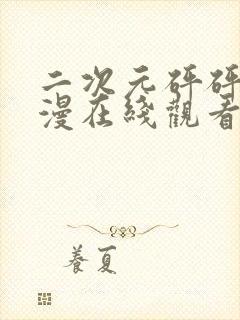 二次元砰砰
漫在綫觀看
養夏